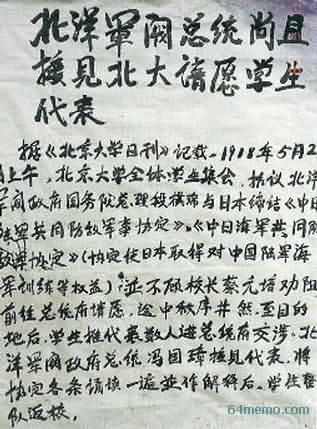 北洋軍阀总统尚且
接見北大请愿学生
代表
据《北京大学日刊》记载，1918年5月2
日上午，北京大学全体学生集会，抗议北洋
军阀政府国务院总理段祺瑞与日本缔结《中日
陆军共同防敌军事协定》、《中日海军共同防
敌军事协定》（协定使日本取得对中国陆军海
军训练等权益）並不顾校长蔡元培劝阻
前往总统府请愿，途中秩序井然，至目的
地后，学生推代表数人进总统府交涉，北
洋军阀政府总统冯国璋接見代表，将
协定各条诵读一遍並作解释后，学生整
队返校。
64memo.com